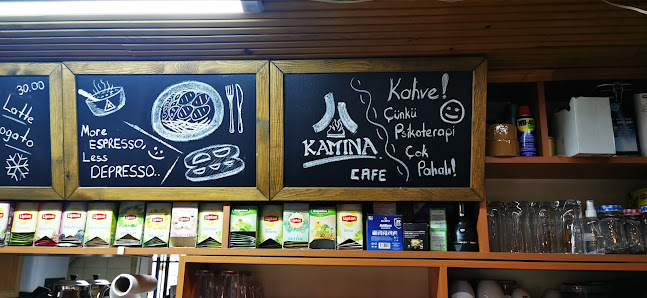 30.00
Latte
ogato
More
ESPRESSO,
Less
DEPRESSO..
KAMINA
CAFE
Kahve!
Çünkü
Psikoterapi
Çok
Pahalı!
WD-40
Lipton
Lipton
Lipton
Lipton
Lipton
Lipton
Lipton
Lipton
Lipton
Lipton